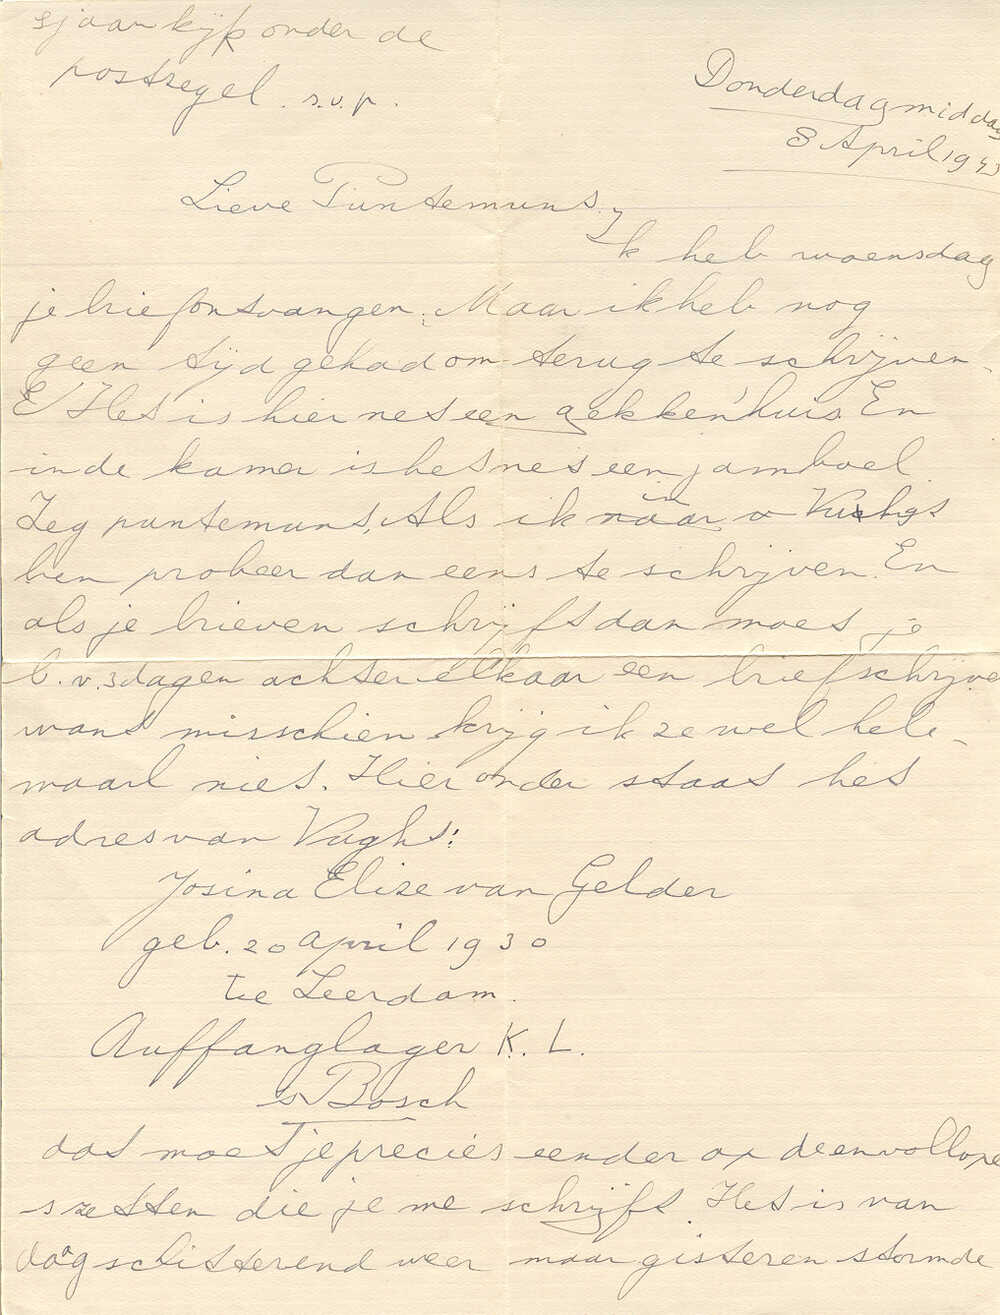 sjaan kijk onder de
postzegel. s.v.p.
Donderdagmiddag
8 April 1943
Lieve Puntemuns.
Ik heb woensdag
je brief ontvangen. Maar ik heb nog
geen tijd gehad om terug te schrijven.
Het is hier net een gekken'huis. En
in de kamer is het net een jamboel
Zeg puntemuns, Als ik in Vught
ben probeer dan eens te schrijven. En
als je brieven schrijft dan moet je
b.v. 3 dagen achter elkaar een brief schrijve
want misschien krijg ik ze wel hele-
maal niet. Hier onder staat het
adres van Vught:
Josina Elize van Gelder
geb. 20 april 1930
te Leerdam.
Auffanglager K. L.
s Bosch
dat moet je precies eender op de envolloppe
zetten die je me schrijft. Het is van
daag schitterend weer maar gisteren stormde